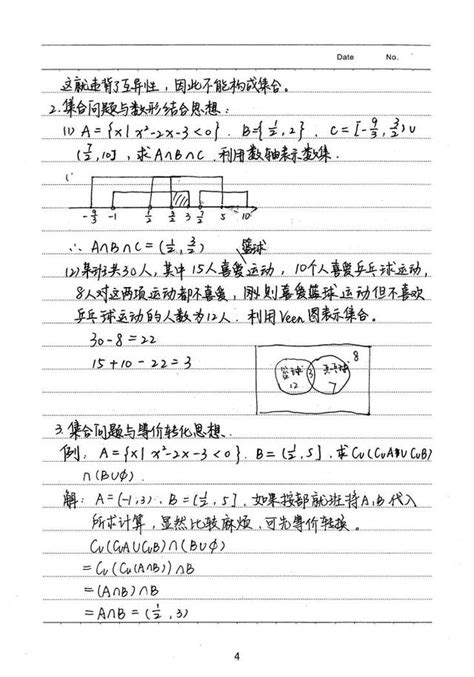 Date No.
这就违背了互异性，因此不能构成集合。
2.集合问题与数形结合思想：
(1) A={x|x²-2x-3<0}. B={½,2}. C=[-9/3,3/2)∪
(7/2,10]，求A∩B∩C.利用数轴表示数集.
-9/3 -1 1/2 3/2 3 7/2 5 10
∴ A∩B∩C=(½,3/2)
篮球
(2)某班共30人，其中15人喜爱运动，10个人喜爱乒乓球运动，
8人对这两项运动都不喜爱，则喜爱篮球运动但不喜欢
乒乓球运动的人数为12人.利用Veen图表示集合。
30-8=22
15+10-22=3
篮球 12 3 乒乓球 7 8
3.集合问题与等价转化思想.
例：A={x|x²-2x-3<0}. B=(½,5].求C∪(C∪A∪C∪B)
∩(B∪φ).
解：A=(-1,3).B=(½,5].如果按部就班将A,B代入
所求计算，显然比较麻烦.可先等价转换。
C∪(C∪A∪C∪B)∩(B∪φ)
=C∪(C∪(A∩B))∩B
=(A∩B)∩B
=A∩B=(½,3)
4